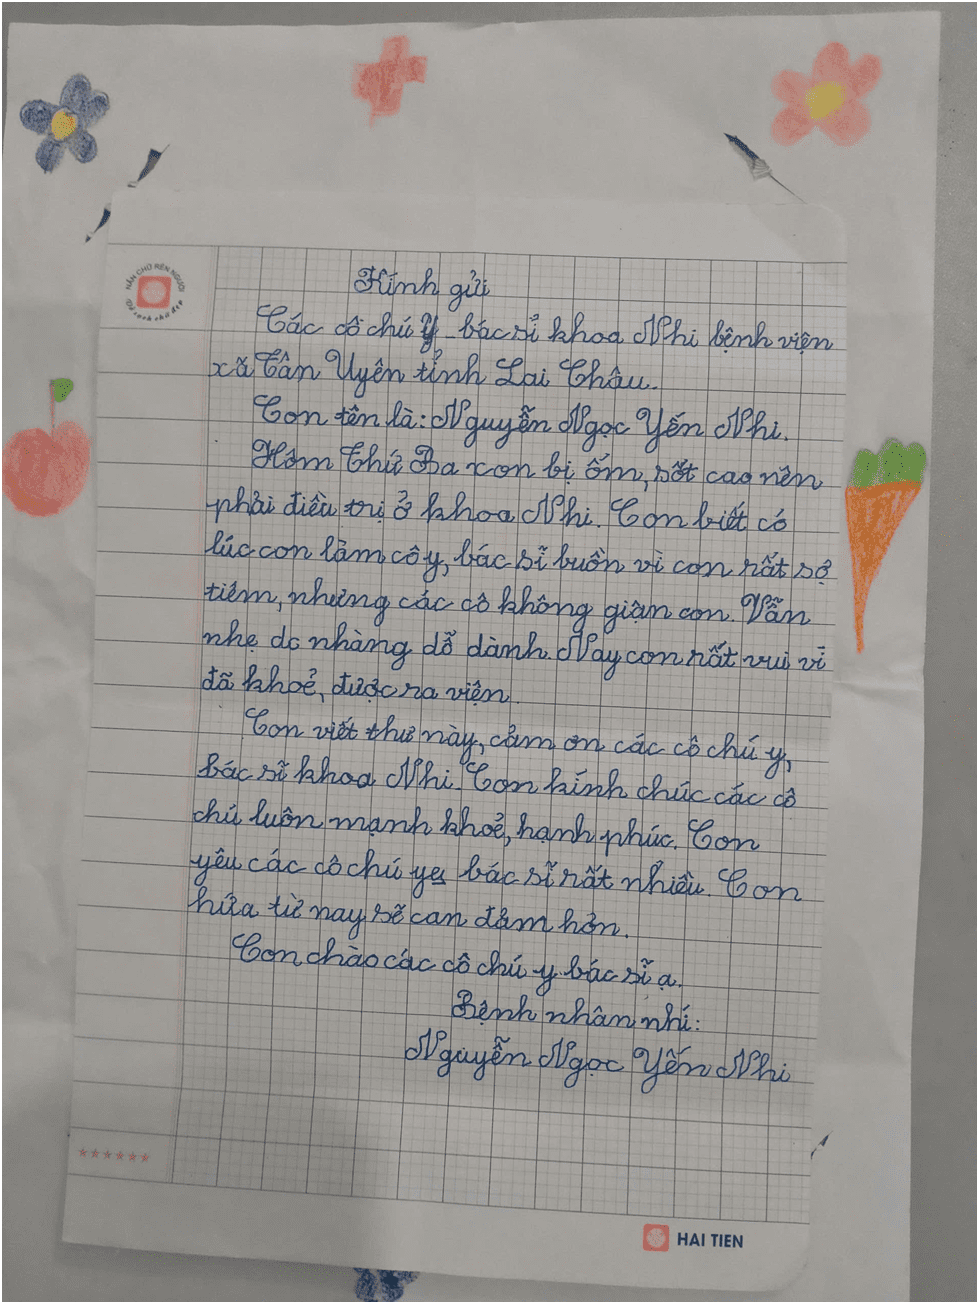 NẮN CHỮ RÈN NGƯỜI
Kính gửi
Các cô chú y bác sỉ khoa Nhi bệnh viện
xã Tân Uyên tỉnh Lai Châu.
Con tên là: Nguyễn Ngọc Yến Nhi.
Hôm thứ Ba con bị ốm, sốt cao nên
phải điều trị ở khoa Nhi. Con biết có
lúc con làm cô y, bác sĩ buồn vì con rất sợ
tiêm, nhưng các cô không giận con. Vẫn
nhẹ dc nhàng dỗ dành. Nay con rất vui vì
đã khoẻ, được ra viện.
Con viết thư này, cảm ơn các cô chú y,
bác sĩ khoa Nhi. Con kính chúc các cô
chú luôn mạnh khoẻ, hạnh phúc. Con
yêu các cô chú y bác sĩ rất nhiều. Con
hứa từ nay sẽ can đảm hơn.
Con chào các cô chú y bác sĩ ạ.
Bệnh nhân nhí:
Nguyễn Ngọc Yến Nhi
HAI TIEN